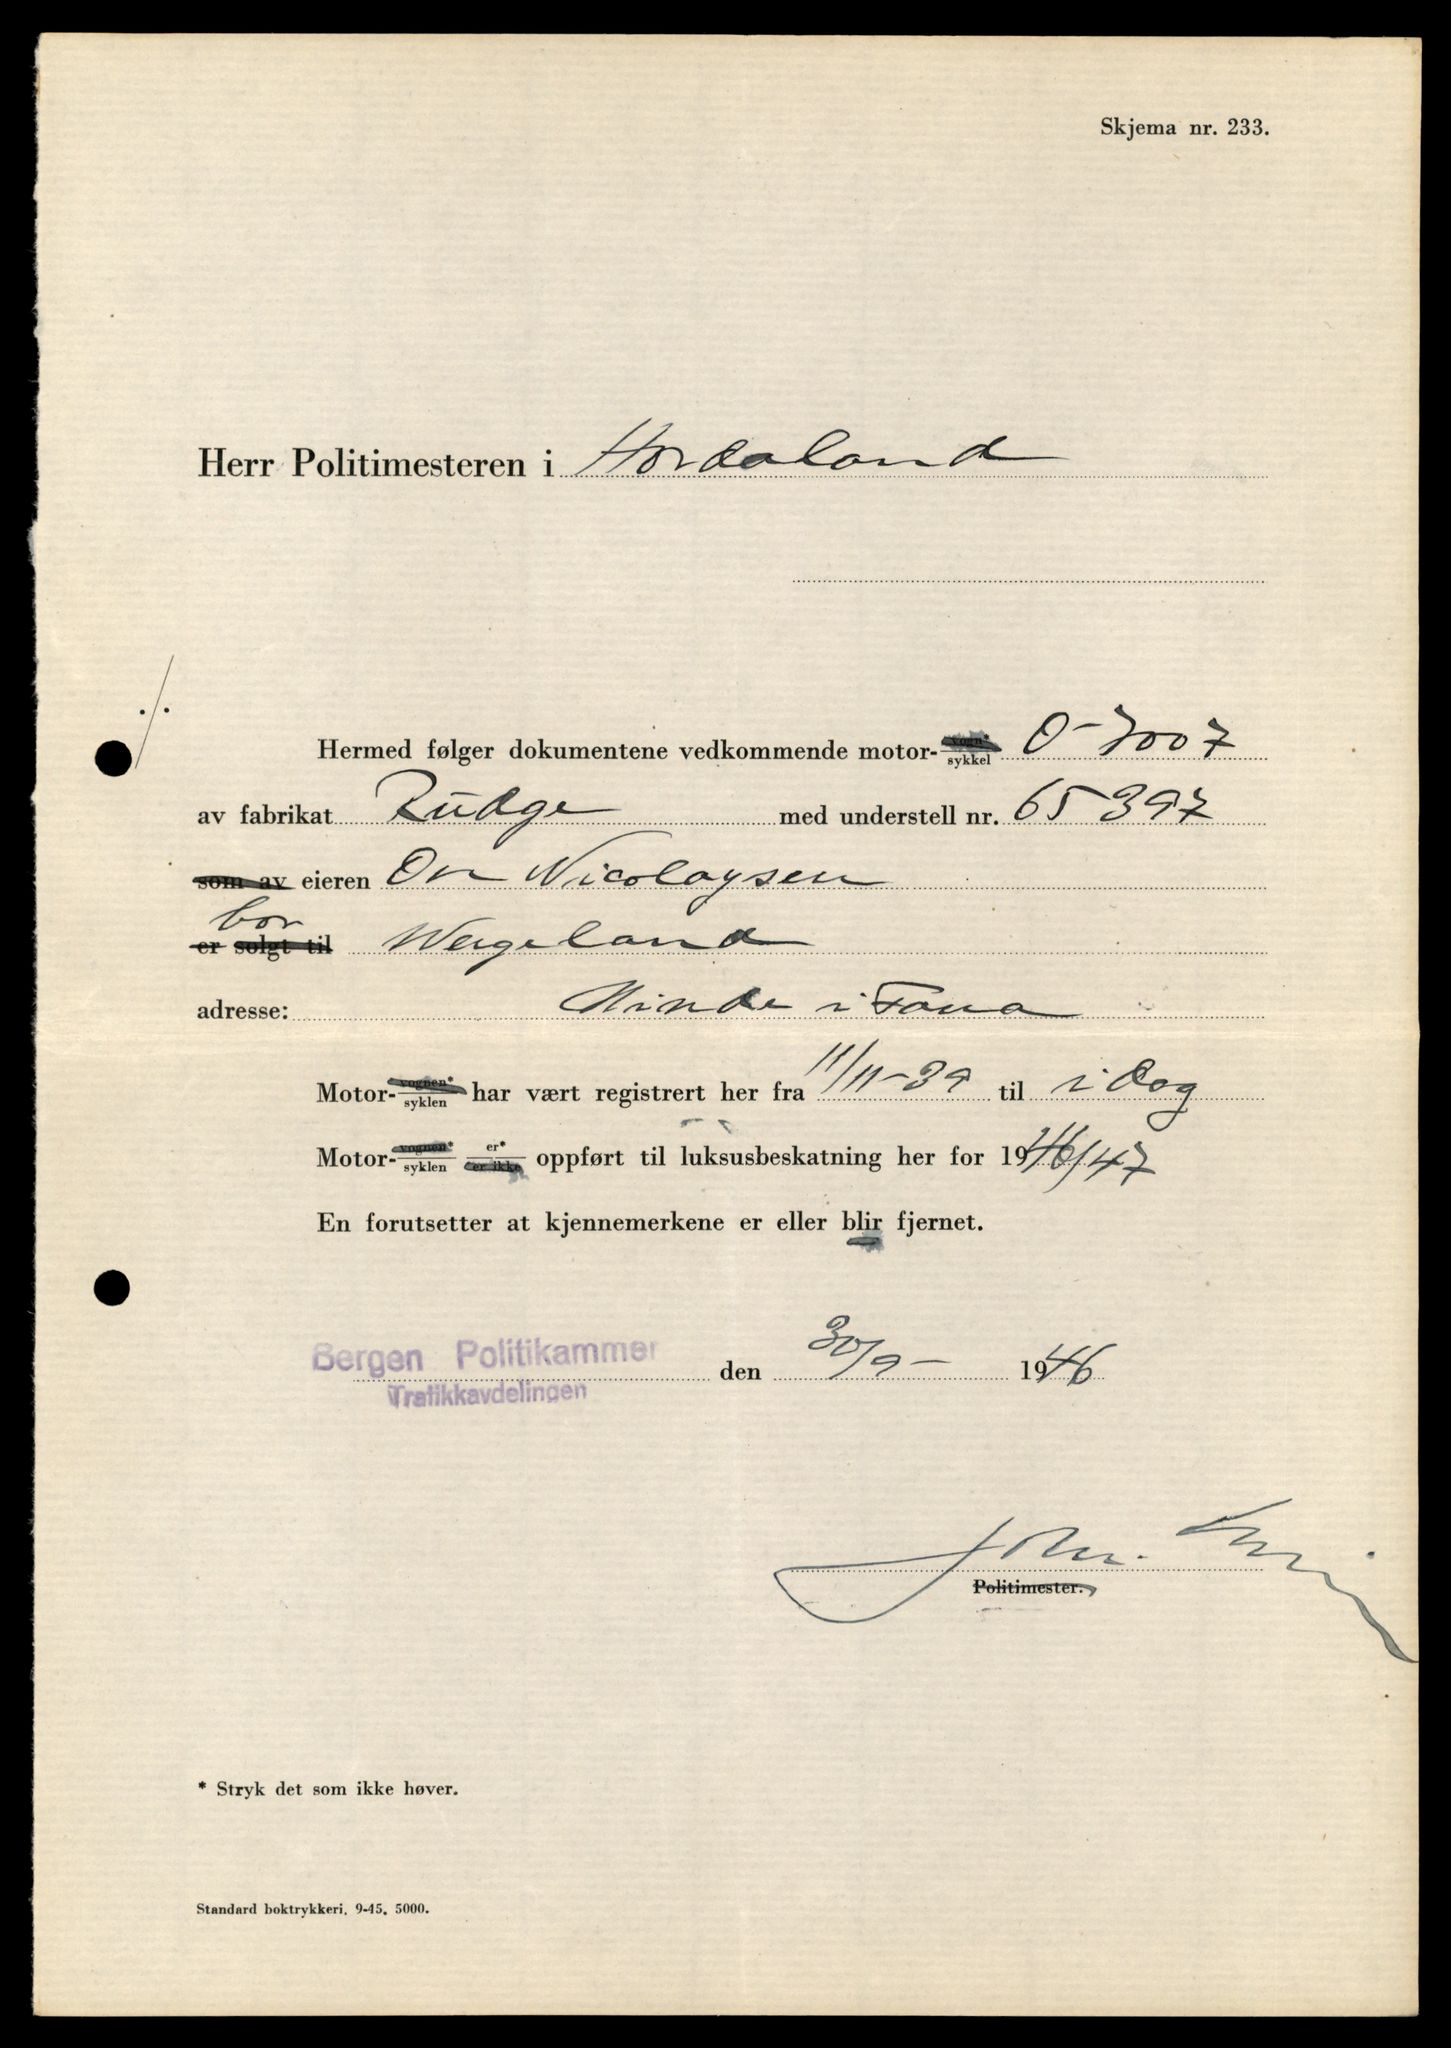 Skjema nr. 233.
Herr Politimesteren i Hordaland
./.
Hermed følger dokumentene vedkommende motor-vogn*/sykkel O-7007
av fabrikat Rudge med understell nr. 65397
som av eieren Ove Nicolaysen
bor
er solgt til Wergeland
adresse: Minde i Fana
Motor-vognen*/syklen har vært registrert her fra 11/11-39 til i dag
Motor-vognen*/syklen er*/er ikke oppført til luksusbeskatning her for 1946/47
En forutsetter at kjennemerkene er eller blir fjernet.
Bergen Politikammer den 30/9- 1946
Trafikkavdelingen
Politimester.
* Stryk det som ikke høver.
Standard boktrykkeri. 9-45. 5000.